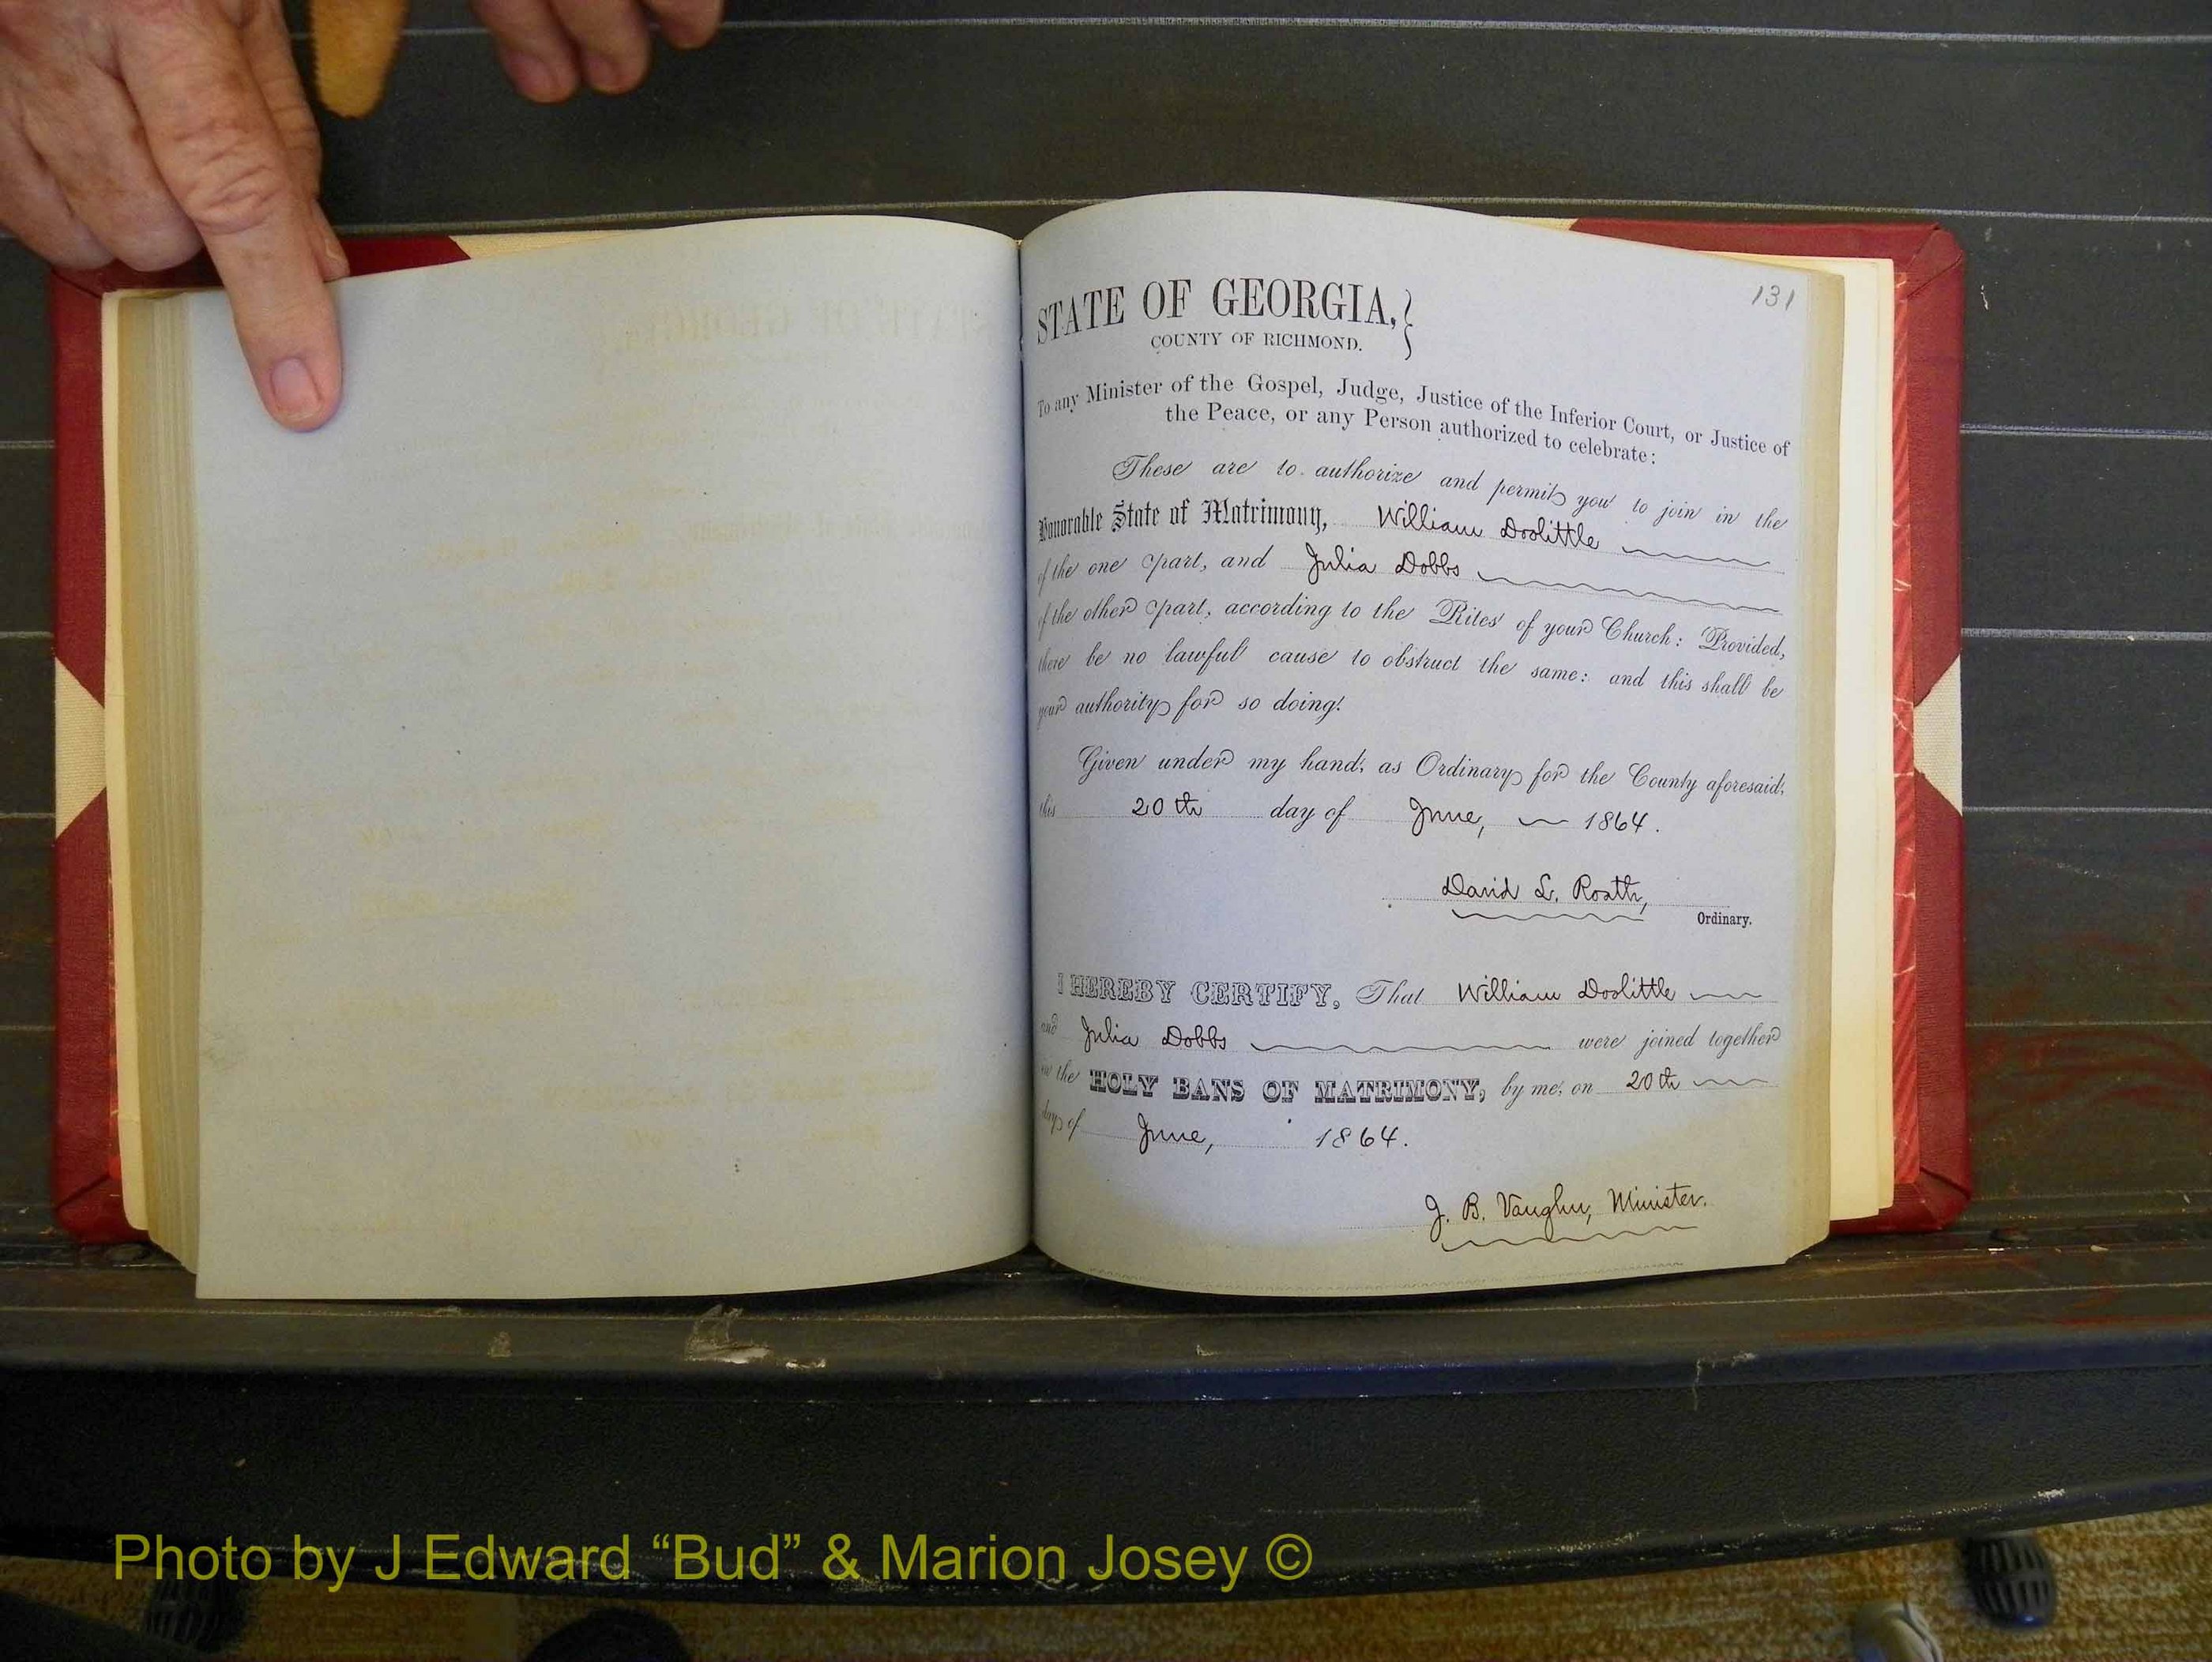 131
STATE OF GEORGIA,
COUNTY OF RICHMOND.
To any Minister of the Gospel, Judge, Justice of the Inferior Court, or Justice of
the Peace, or any Person authorized to celebrate:
These are to authorize and permit you to join in the
Honorable State of Matrimony, William Doolittle
of the one part, and Julia Dobbs
of the other part, according to the Rites of your Church: Provided,
there be no lawful cause to obstruct the same: and this shall be
your authority for so doing.
Given under my hand, as Ordinary for the County aforesaid,
this 20th day of June, 1864.
David L. Roath,
Ordinary.
I HEREBY CERTIFY, That William Doolittle
and Julia Dobbs were joined together
in the HOLY BANS OF MATRIMONY, by me, on 20th
day of June, 1864.
J. B. Vaughn, Minister.
Photo by J Edward “Bud” & Marion Josey ©